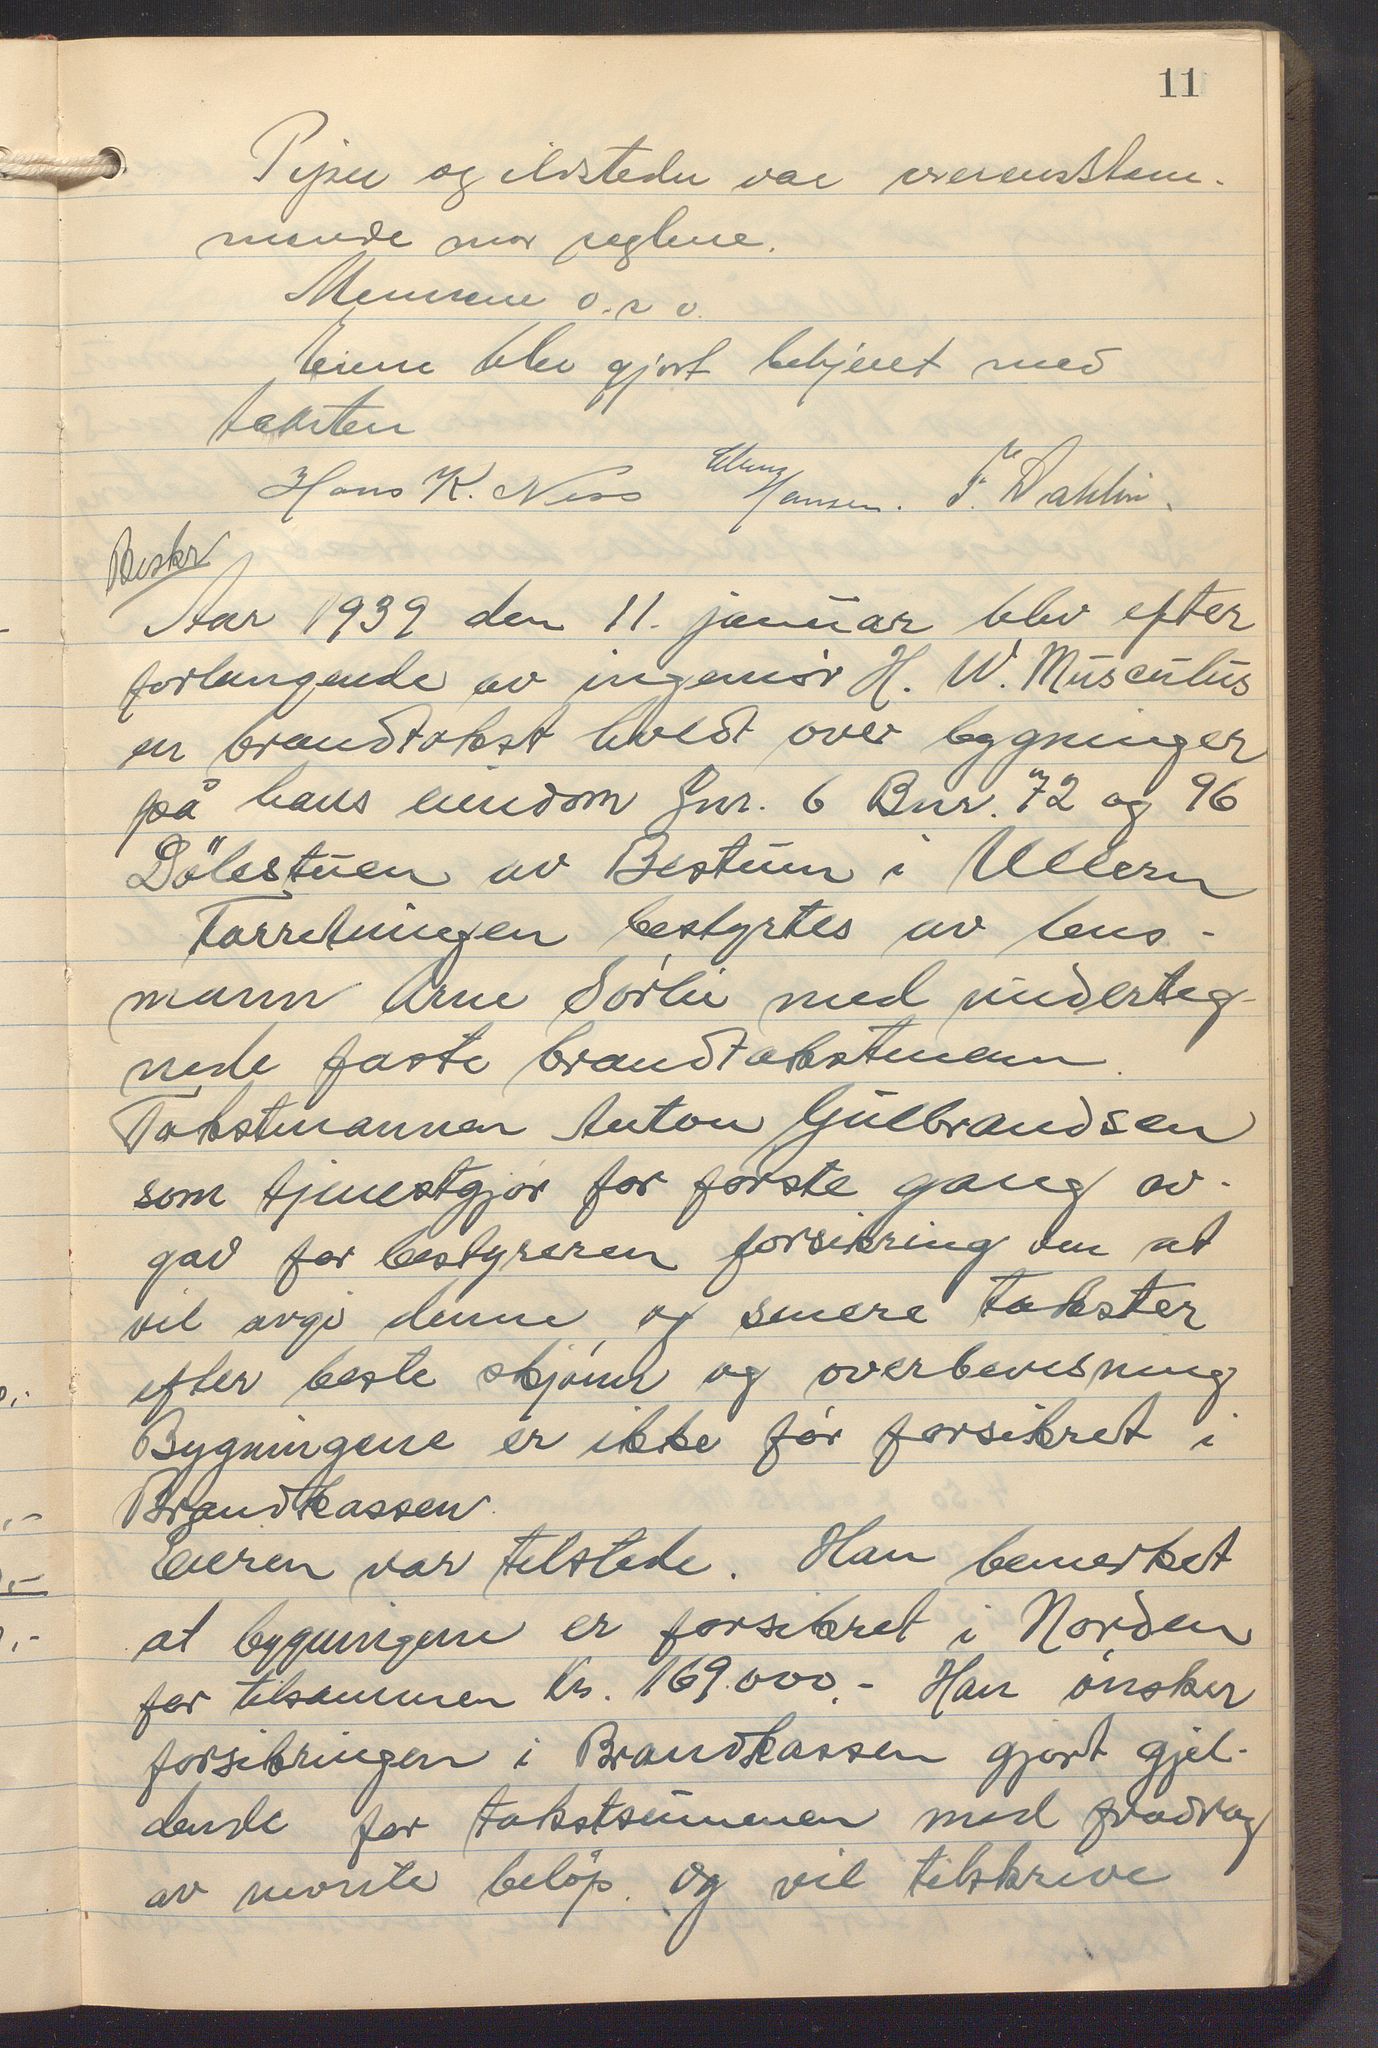 11
Piper og ildsteder var overensstem-
mende med reglene.
Mennene o.s.v.
Eieren blev gjort bekjent med
taksten
Hans K. Ness Hansen. Dahlin.
Beskr
Aar 1939 den 11. januar blev efter
forlangende av ingeniør H. W. Musculus
en brandtakst holdt over bygninger
på hans eiendom Gnr. 6 Bnr. 72 og 96
Dölestuen av Bestum i Ullern
Forretningen bestyrtes av lens-
mann Arne Sörlie med underteg-
nede faste brandtakstmenn.
Takstmannen Anton Gulbrandsen
som tjenestgjør for første gang av-
gav for bestyreren forsikring om at
vil avgi denne og senere takster
efter beste skjønn og overbevisning
Bygningene er ikke før forsikret i
Brandkassen.
Eieren var tilstede. Han bemerket
at bygningene er forsikret i Norden
for tilsammen Kr. 169.000,- Han ønsker
forsikringen i Brandkassen gjort gjel-
dende for takstsummen med fradrag
av nevnte beløp. Og vil tilskrive